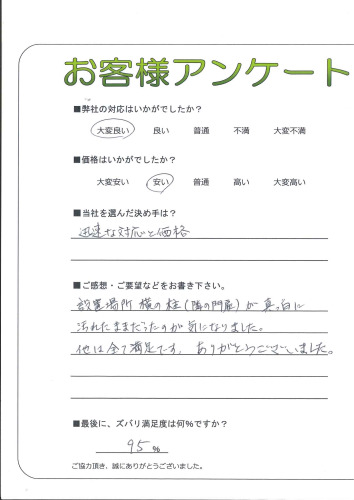 お客様アンケート
■弊社の対応はいかがでしたか？
大変良い 良い 普通 不満 大変不満
■価格はいかがでしたか？
大変安い 安い 普通 高い 大変高い
■当社を選んだ決め手は？
迅速な対応と価格
■ご感想・ご要望などをお書き下さい。
設置場所 横の柱(隣の門扉)が真っ白に
汚れたままだったのが気になりました。
他は全て満足です。ありがとうございました。
■最後に、ズバリ満足度は何%ですか？
95 %
ご協力頂き、誠にありがとうございました。